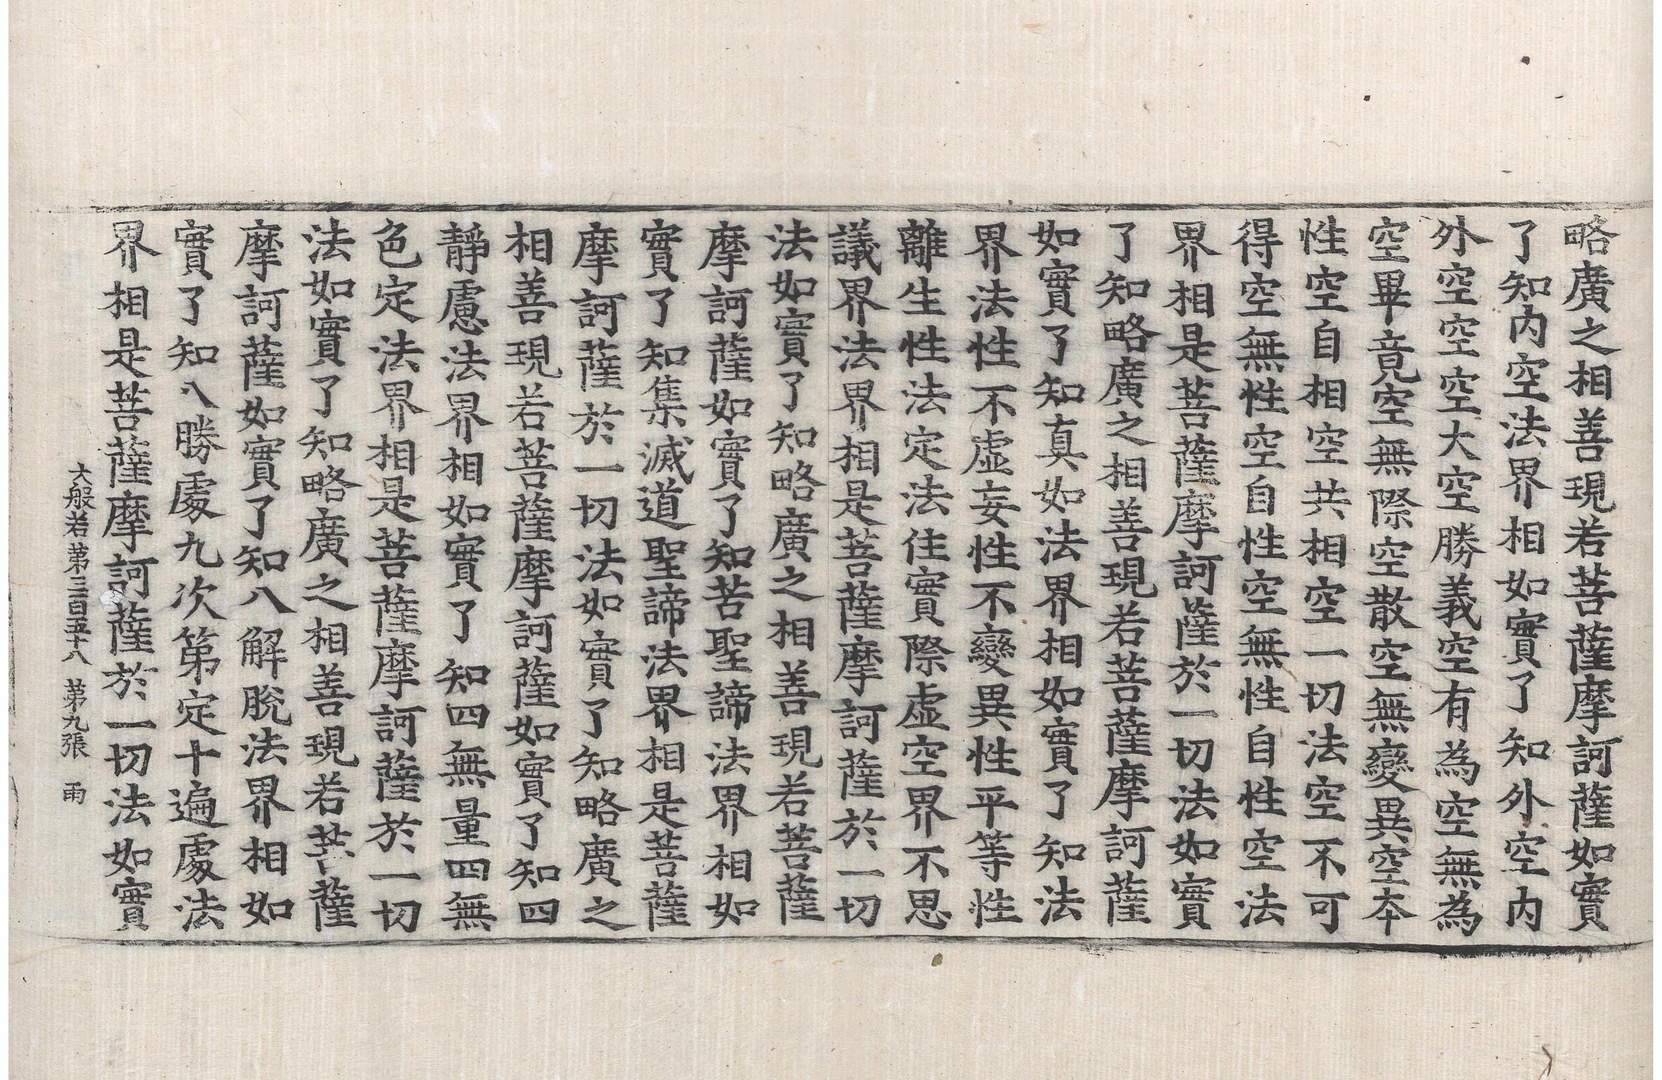 略廣之相善現若菩薩摩訶薩如實
了知內空法界相如實了知外空內
外空空空大空勝義空有為空無為
空畢竟空無際空散空無變異空本
性空自相空共相空一切法空不可
得空無性空自性空無性自性空法
界相是菩薩摩訶薩於一切法如實
了知略廣之相善現若菩薩摩訶薩
如實了知真如法界相如實了知法
界法性不虛妄性不變異性平等性
離生性法定法住實際虛空界不思
議界法界相是菩薩摩訶薩於一切
法如實了知略廣之相善現若菩薩
摩訶薩如實了知苦聖諦法界相如
實了知集滅道聖諦法界相是菩薩
摩訶薩於一切法如實了知略廣之
相善現若菩薩摩訶薩如實了知四
靜慮法界相如實了知四無量四無
色定法界相是菩薩摩訶薩於一切
法如實了知略廣之相善現若菩薩
摩訶薩如實了知八解脫法界相如
實了知八勝處九次第定十遍處法
界相是菩薩摩訶薩於一切法如實
大般若第三百五十八 第九張 雨